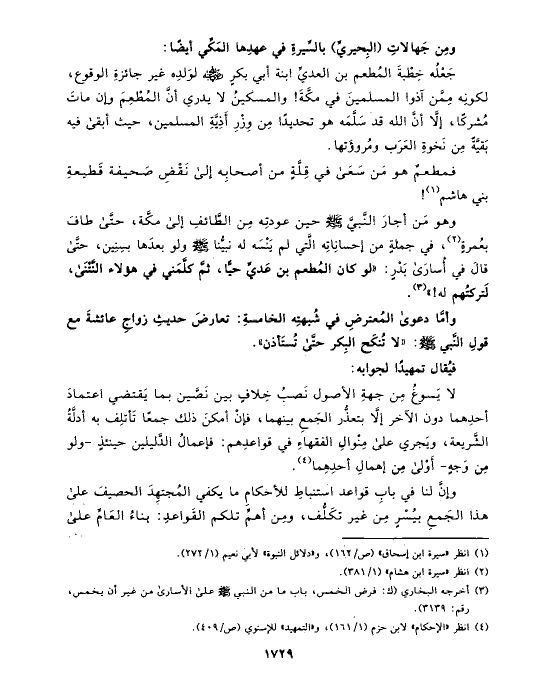 ومِن جَهالاتِ (البِحيريِّ) بالسِّيرةِ في عهدِها المَكِّي أيضًا:
جَعْلُه خِطْبةَ المُطعم بن العديِّ ابنة أبي بكرٍ ﷺ لوَلدِه غير جائزةِ الوقوع،
لكونِه مِمَّن آذوا المسلمينَ في مكَّة! والمسكينُ لا يدري أنَّ المُطْعِمَ وإن ماتَ
مُشركًا، إلَّا أنَّ الله قد سَلَّمَه هو تحديدًا مِن وِزْرِ أذِيَّةِ المسلمين، حيث أبقىٰ فيه
بَقيَّةً مِن نَخوةِ العَرَب ومُروؤتِها.
فـمطعمٌ هو مَن سَعَىٰ في قِلَّةٍ من أصحابِه إلىٰ نَقْضِ صَحيفة قَطيعةِ
بني هاشم(١)!
وهو مَن أجارَ النَّبيَّ ﷺ حين عودتِه مِن الطَّائفِ إلىٰ مكَّة، حتَّىٰ طافَ
بعُمرةٍ(٢)، في جملةٍ من إحساناتِه الَّتي لم يَنْسَه له نبيُّنا ﷺ ولو بعدَها بسِنِين، حتَّىٰ
قالَ في أُسارَىٰ بَدْرٍ: «لو كان المُطعم بن عَديٍّ حيًّا، ثمَّ كلَّمَني في هؤلاء النَّتْنَىٰ،
لَتركتُهم له!»(٣).
وأمَّا دعوىٰ المُعترضِ في شُبهتِه الخامسةِ: تعارضَ حديثِ زواجِ عائشةَ مع
قولِ النَّبي ﷺ: «لا تُنكَح البِكر حتَّىٰ تُستَأذن».
فيُقال تمهيدًا لجوابِه:
لا يَسوغُ مِن جهةِ الأصول نَصبُ خِلافٍ بين نَصَّين بما يَقتضي اعتمادَ
أحدِهما دون الآخرِ إلَّا بتعذُّر الجَمعِ بينهما، فإنْ أمكنَ ذلك جمعًا تَأتلِف به أدلَّةُ
الشَّريعة، ويَجري علىٰ مِنْوالِ الفقهاءِ في قواعدِهم: فإعمالُ الدَّليلين حينئذٍ -ولو
مِن وَجهٍ- أَوْلىٰ مِن إهمالِ أحدِهما(٤).
وإنَّ لنا في بابِ قواعد استنباطِ للأحكامِ ما يكفي المُجتهِدَ الحصيفَ علىٰ
هذا الجَمعِ بيُسْرٍ مِن غير تكلُّف، ومِن أهمِّ تلكم القواعدِ: بناءُ العَامِّ علىٰ
(١) انظر «سيرة ابن إسحاق» (ص/١٦٢)، و«دلائل النبوة» لأبي نعيم (١/٢٧٢).
(٢) انظر «سيرة ابن هشام» (١/٣٨١).
(٣) أخرجه البخاري (ك: فرض الخمس، باب ما من النبي ﷺ علىٰ الأسارىٰ من غير أن يخمس،
رقم: ٣١٣٩).
(٤) انظر «الإحكام» لابن حزم (١/١٦١)، و«التمهيد» للإسنوي (ص/٤٠٩).
١٧٢٩